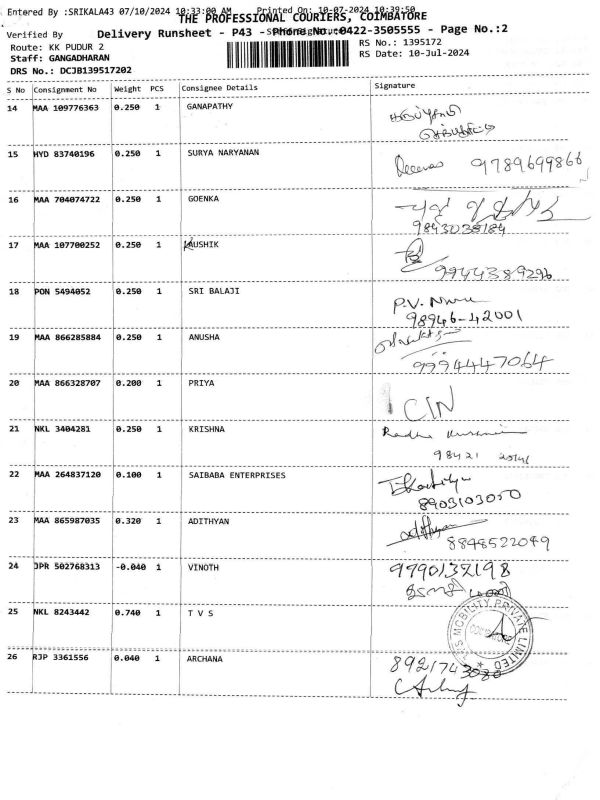 Entered By :SRIKALA43 07/10/2024 10:33:00 AM Printed On: 10-07-2024 10:39:50
THE PROFESSIONAL COURIERS, COIMBATORE
Verified By Delivery Runsheet - P43 - Phone No.:0422-3505555 - Page No.:2
Route: KK PUDUR 2 RS No.: 1395172
Staff: GANGADHARAN RS Date: 10-Jul-2024
DRS No.: DCJB139517202
S No Consignment No Weight PCS Consignee Details Signature
14 MAA 109776363 0.250 1 GANAPATHY
15 HYD 83740196 0.250 1 SURYA NARYANAN 9789699866
16 MAA 704074722 0.250 1 GOENKA
9843038184
17 MAA 107700252 0.250 1 KAUSHIK
9944389296
18 PON 5494052 0.250 1 SRI BALAJI P.V.
98946-42001
19 MAA 866285884 0.250 1 ANUSHA
9994447064
20 MAA 866328707 0.200 1 PRIYA
CIN
21 NKL 3404281 0.250 1 KRISHNA Radha
98421
22 MAA 264837120 0.100 1 SAIBABA ENTERPRISES
8903103050
23 MAA 865987035 0.320 1 ADITHYAN adithyan
8848522049
24 JPR 502768313 -0.040 1 VINOTH 9790132198
25 NKL 8243442 0.740 1 T V S
MOBILITY PRIVATE LIMITED
26 RJP 3361556 0.040 1 ARCHANA 8921743080